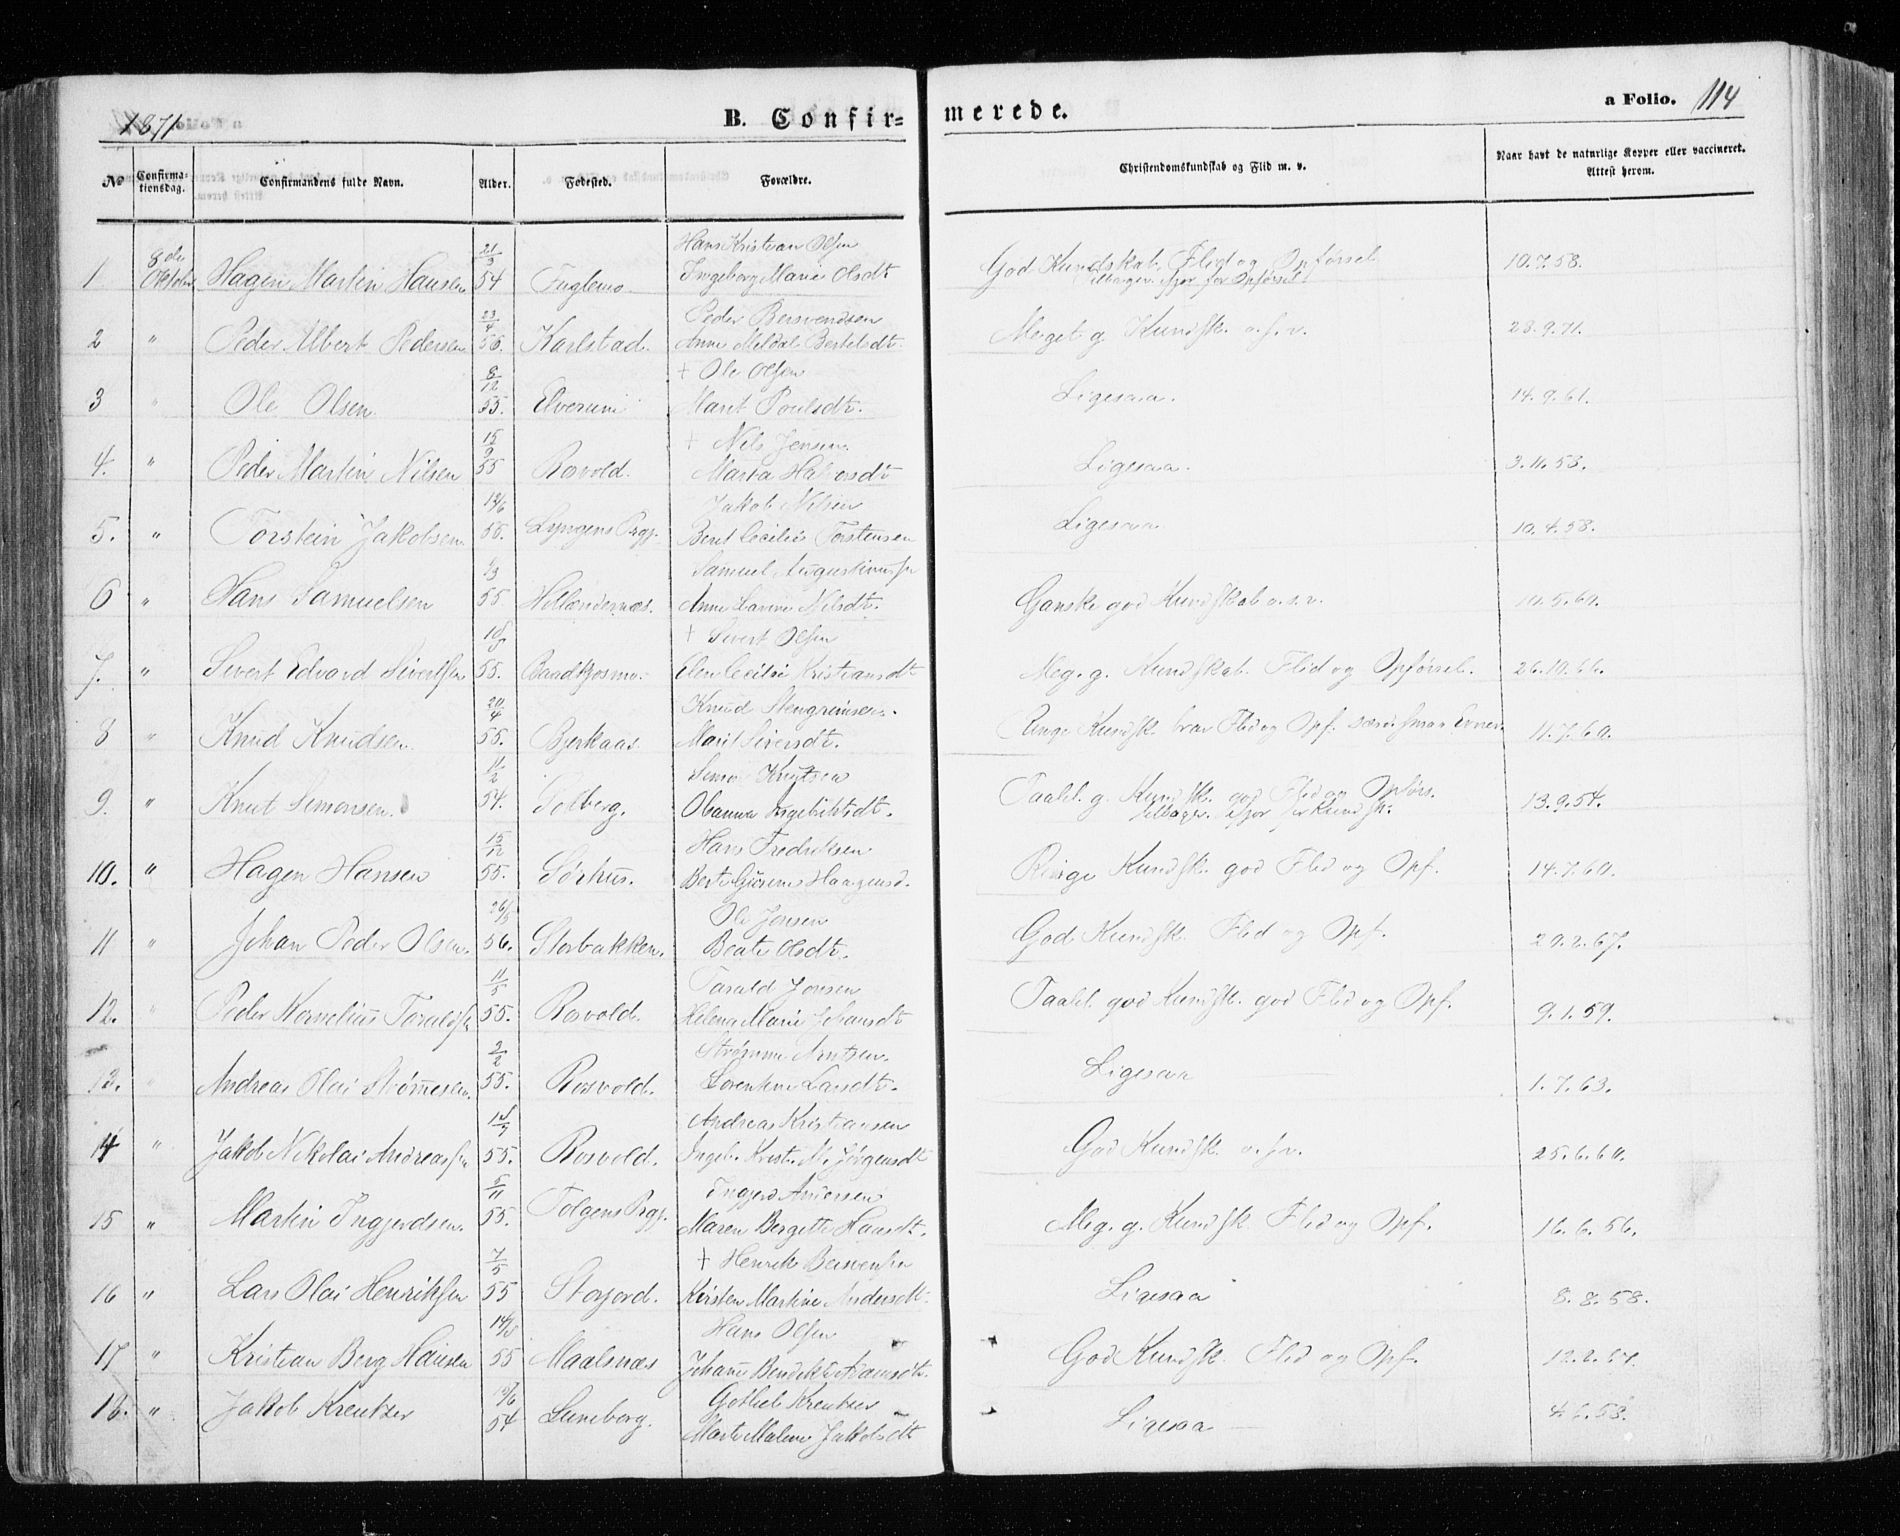 1871
B. Confirmerede.
a Folio. 114
No
Confirmationsdag.
Confirmandens fulde Navn.
Alder.
Fødested.
Forældre.
Christendomskundskab og Flid m. v.
Naar havt de naturlige Kopper eller vaccineret. Attest herom.
Hans Kristian Olsen
1 8de Oktober Hagen Martin Hansen 21/3 54 Fuglemo Ingeborg Marie Olsdt God Kundskab, Flid og Opførsel 10.7.58.
tilbager. ifjor for Opførsel
Peder Bersvendsen
2 " Peder Albert Pedersen 23/4 56 Karlstad. Anne Meldal Bertelsdt. Meget g. Kundsk. o.s.v. 28.9.71.
+ Ole Olsen
3 " Ole Olsen 8/12 55. Elverum Marit Poulsdt. Ligesaa. 14.9.61.
+ Nils Jensen
4. " Peder Martin Nilsen 15/9 55 Rosvold. Marta Halvorsdt Ligesaa. 3.11.58.
Jakob Nilsen
5. " Torstein Jakobsen 55. Lyngens Prgj. Berit Cecilie Torstensen Ligesaa 10.4.58.
Samuel Augustinussen
6 " Hans Samuelsen 55. Hollendernæs. Anne Lavine Nilsdt. Ganske god Kundskab o.s.v. 10.5.60.
+ Sivert Olsen
7. " Sivert Edvard Sivertsen 55. Baadkjosmo. Elen Cecilie Kristiansdt Meg. g. Kundskab. Flid og Opførsel. 26.10.66.
Knud Stengrimsen.
8 " Knud Knudsen 20/4 55. Bjerkaas Marit Siversdt. Ringe Kundsk. brav Flid og Opf. særd. smaa Evner. 11.7.60.
Simon Knutsen
9. " Knut Simonsen. 11/2 54. Solberg. Olianna Ingebriktsdt. Taalel. g. Kundsk. god Flid og Opførs. 13.9.54.
tilbager. ifjor for Kundsk.
Hans Fredriksen
10. " Hagen Hansen 15/12 55. Sørhus. Berte Gurine Haagensd. Ringe Kundsk. god Flid og Opf. 14.7.60.
Ole Jonsen
11 " Johan Peder Olsen. 26/5 56. Storbakken. Beate Olsdt. God Kundsk. Flid og Opf. 20.2.67.
Tarald Jonsen
12. " Peder Kornelius Taraldsen 11/5 55. Rosvold. Helena Marie Johansdt Taalel. god Kundsk. god Flid og Opf. 9.1.59.
Strømme Arntzen.
13. " Andreas Olai Strømmesen. 2/2 55. Rosvold. Lorentine Larsdt. Ligesaa 1.7.63.
Andreas Kristiansen
14 " Jakob Nikolai Andreassen 55. Rosvold. Ingeb. Krist. M. Jørgensdt God Kundsk. o.s.v. 25.6.60.
Ingjerd Andersen
15 " Martin Ingjerdsen. 5/11 55. Tolgens Prgj. Maren Bergitte Hansdt. Meg. g. Kundsk. Flid og Opf. 16.6.56.
+ Henrik Bersvensen
16 " Lars Olai Henriksen 7/5 55 Storjord. Kirsten Martine Andersdt. Ligesaa 8.8.58.
Hans Olsen
17 " Kristian Berg Hansen 14/5 55 Maalsnæs Johanne Bendikte Adamsdt. God Kundsk. Flid og Opf.
Gotlieb Kreutzer
18. " Jakob Kreutzer 54 Luneborg. Marte Malene Jakobsdt Ligesaa 4.6.58.